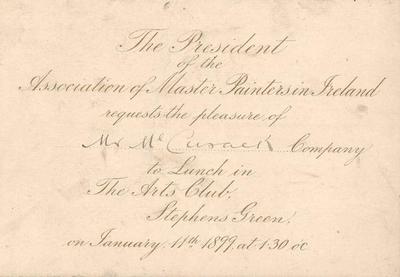 The President
of the
Association of Master Painters in Ireland
requests the pleasure of
Mr Mc Cusack Company
to Lunch in
The Arts Club,
Stephens Green,
on January 11th 1899, at 1.30 oc